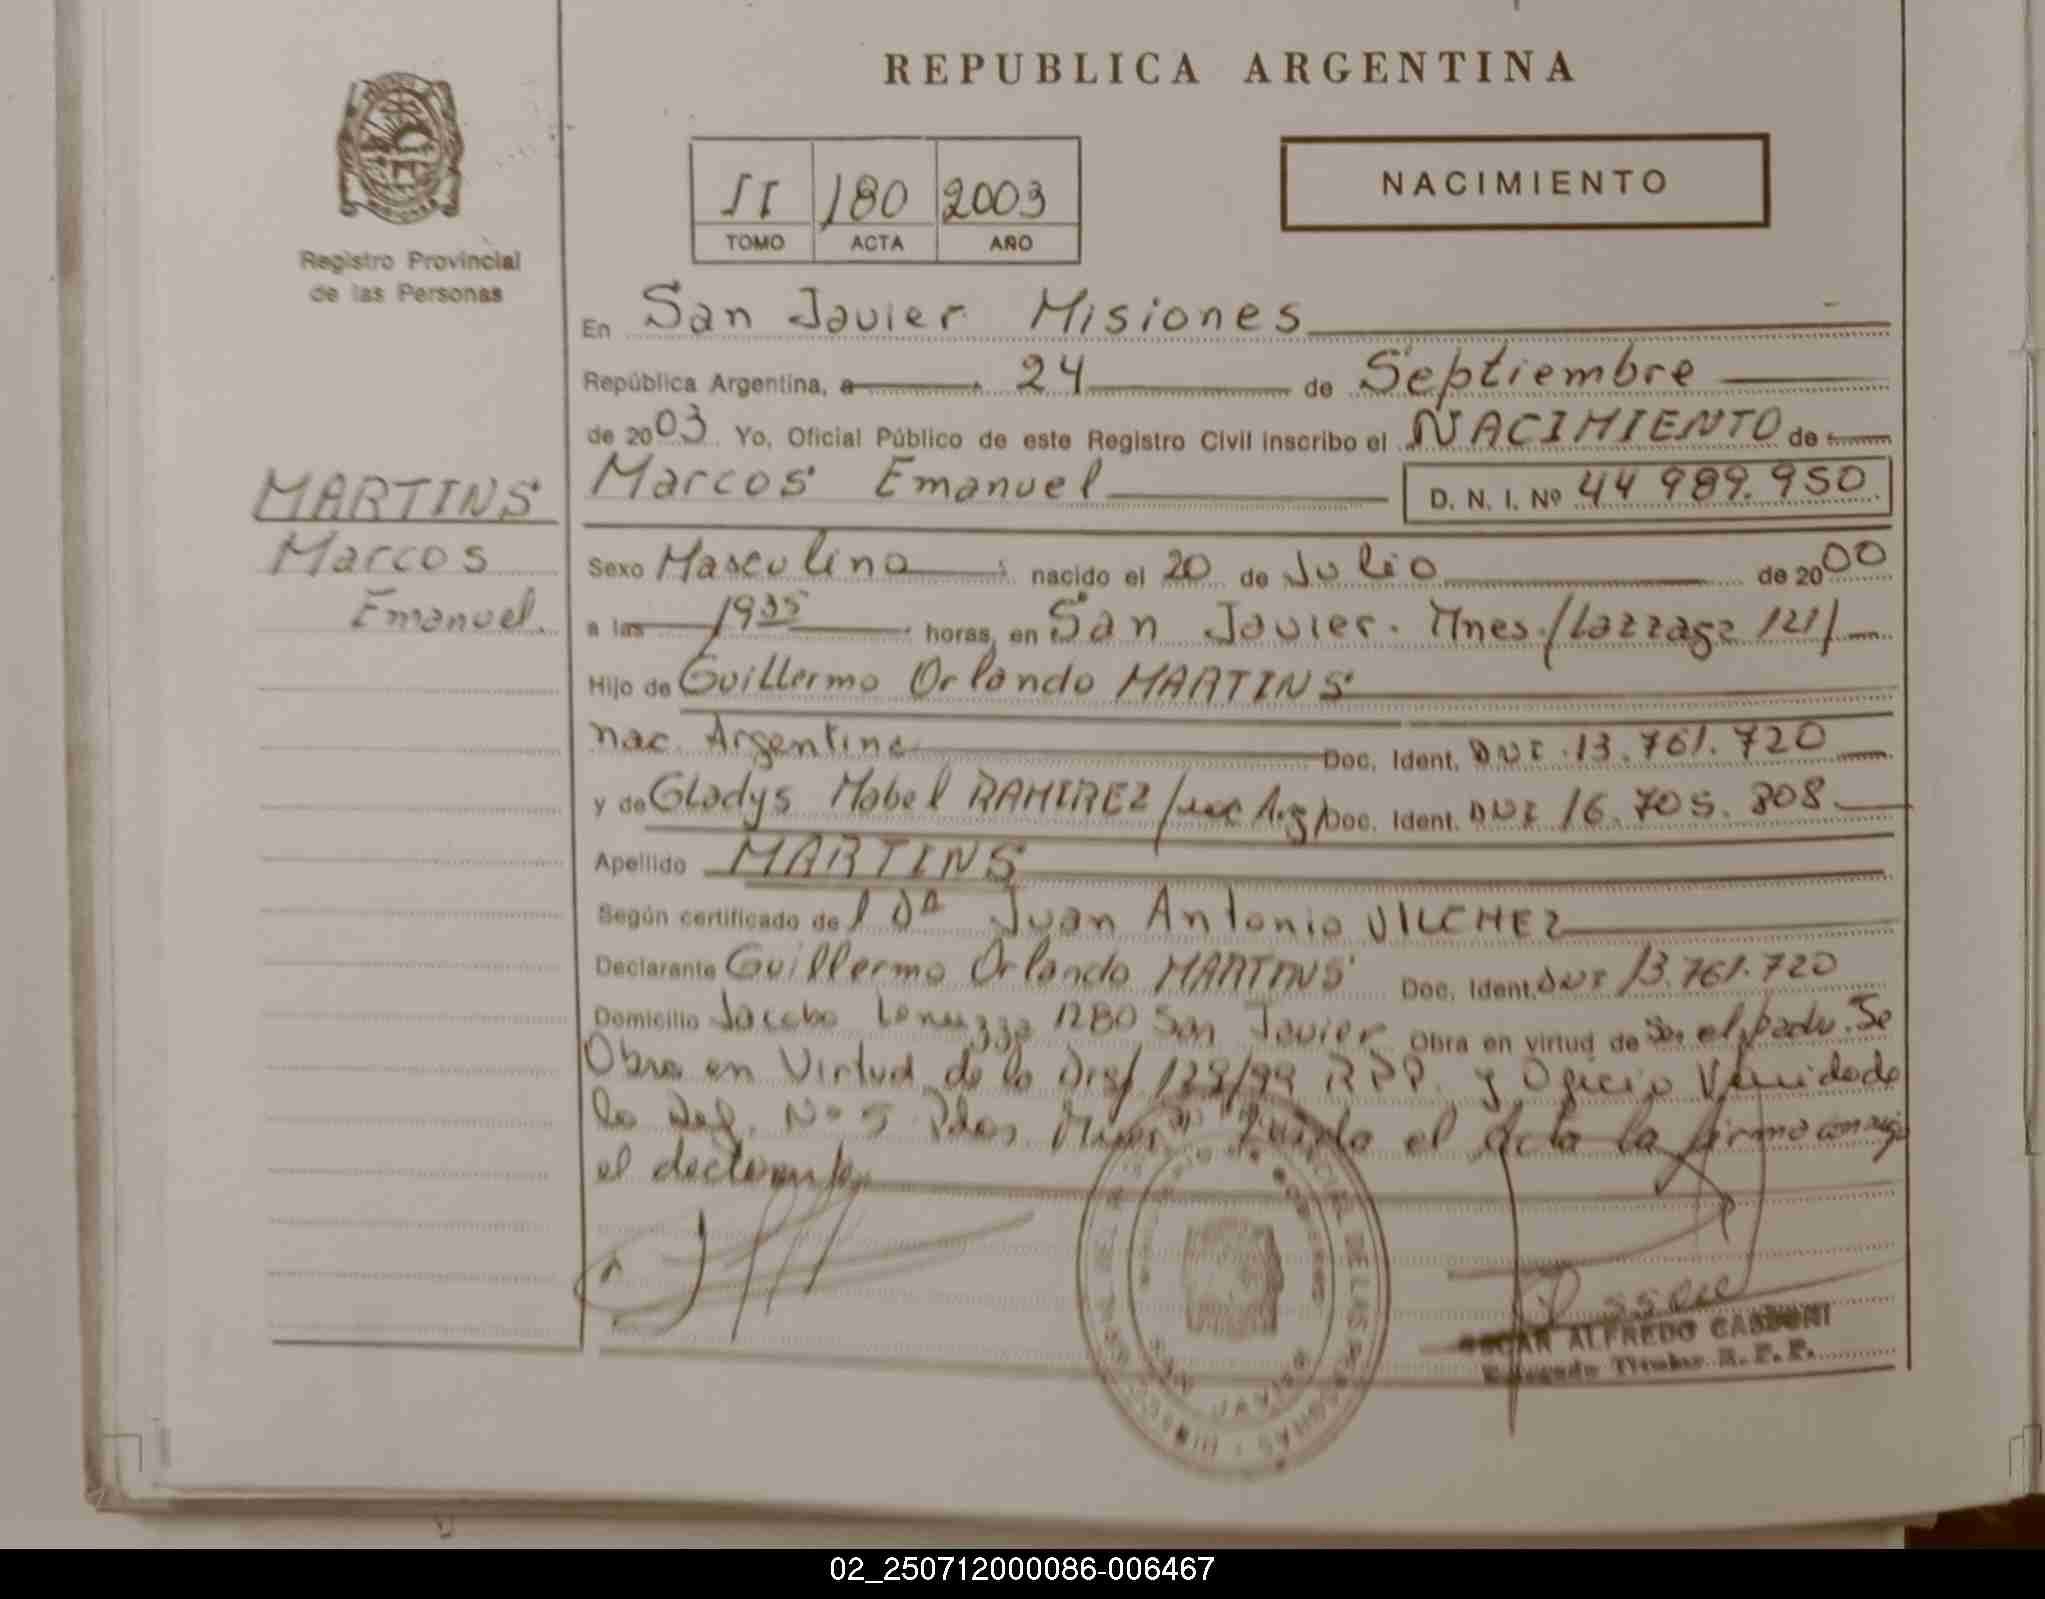 REPUBLICA ARGENTINA
NACIMIENTO
II 180 2003
TOMO ACTA AÑO
Registro Provincial
de las Personas
En San Javier Misiones
República Argentina, a 24 de Septiembre
de 2003 Yo, Oficial Público de este Registro Civil inscribo el NACIMIENTO de
Marcos Emanuel D. N. I. Nº 44 989.950
MARTINS
Marcos
Emanuel.
Sexo Masculino nacido el 20 de Julio de 2000
a las 1935 horas, en San Javier. Mnes./Lazzaga 121/
Hijo de Guillermo Orlando MARTINS
nac. Argentina Doc. Ident. DNI 13.761.720
y de Gladys Mabel RAMIREZ /nac Arg/ Doc. Ident. DNI 16.705.808
Apellido MARTINS
Según certificado del Dr Juan Antonio VILCHEZ
Declarante Guillermo Orlando MARTINS Doc. Ident. DNI 13.761.720
Domicilio Jacobo 1280 San Javier Obra en virtud de Ser el padre. Se
Obra en Virtud de la Disp 128/99 RPP. y Oficio Venido de
la Def. Nº 5 Pdas Mnes. Leida el Acta la firma conmigo
el declarante
SAN JAVIER
OSCAR ALFREDO
Delegado Titular R. P. P.
02_250712000086-006467